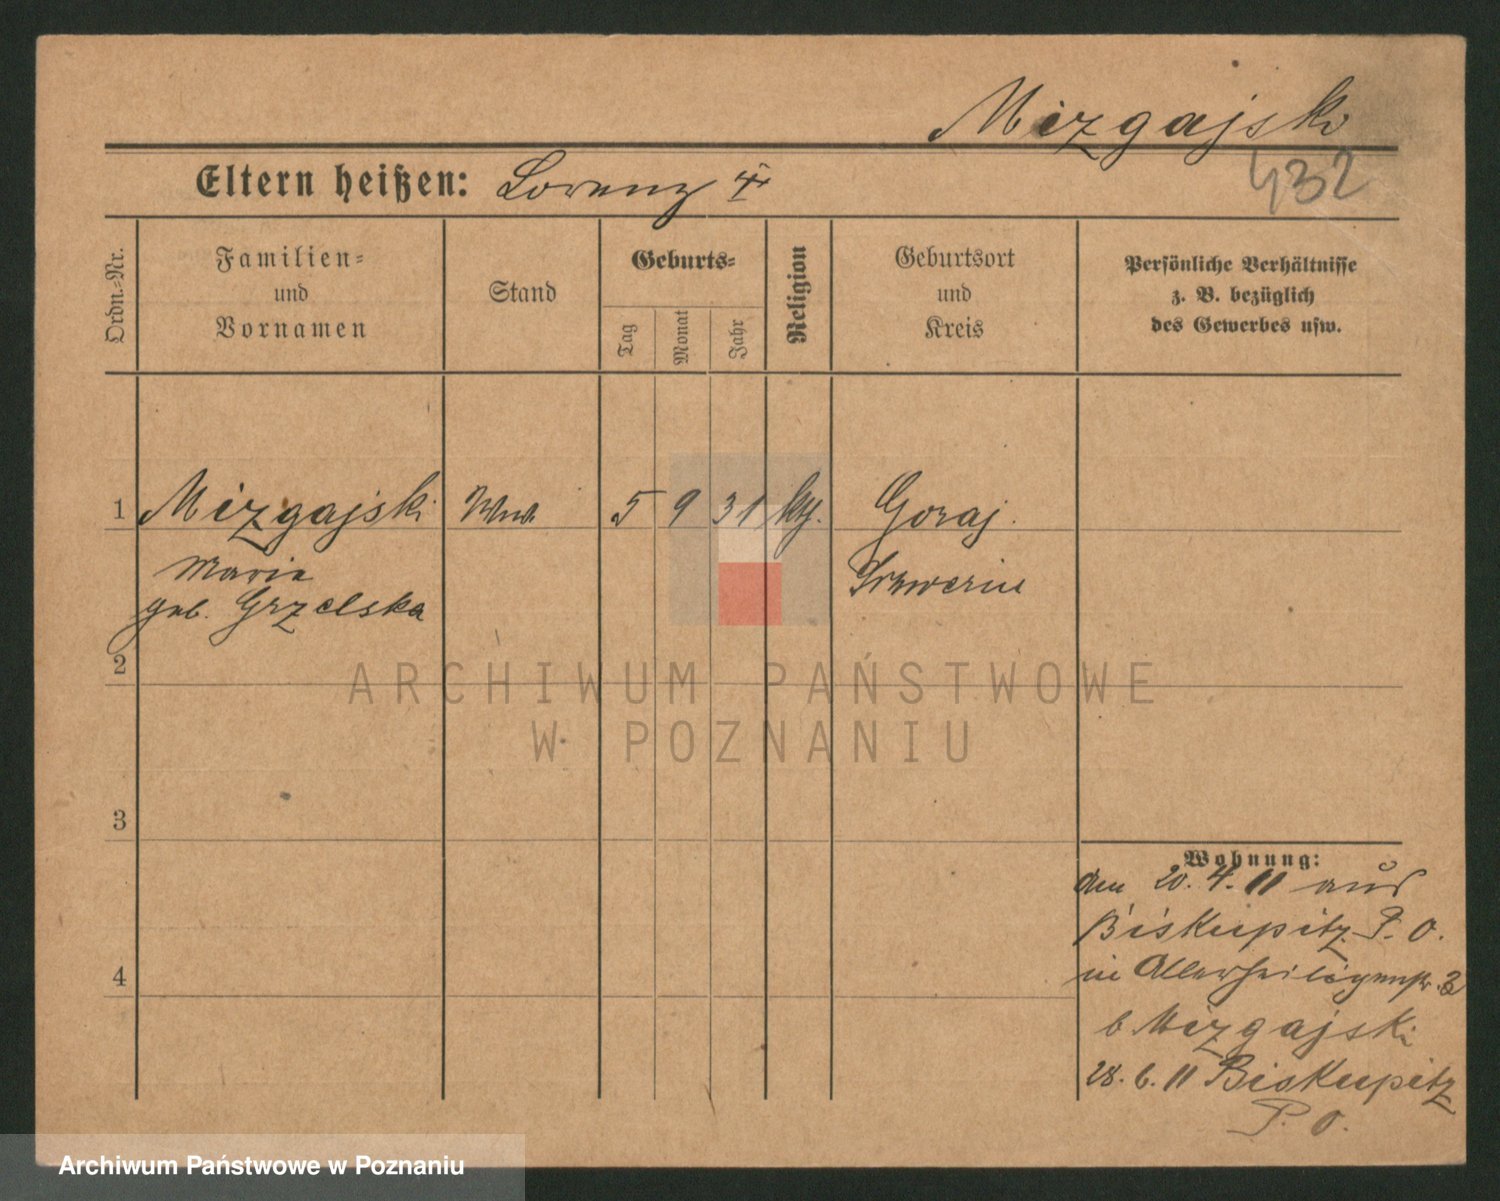 Mizgajski
432
Eltern heißen: Lorenz
Ordn.-Nr.
Familien-
und
Vornamen
Stand
Geburts-
Tag
Monat
Jahr
Religion
Geburtsort
und
Kreis
Persönliche Verhältnisse
z. B. bezüglich
des Gewerbes usw.
1 Mizgajski Wwe. 5 9 31 kth. Goraj.
Marie Schwerin
geb. Grzelska
2
3
4
Wohnung:
den 20. 4. 11 aus
Biskupitz P. O.
in Allerheiligenstr. 3
b Mizgajski
28. 6. 11 Biskupitz
P. O.
ARCHIWUM PAŃSTWOWE
W POZNANIU
Archiwum Państwowe w Poznaniu